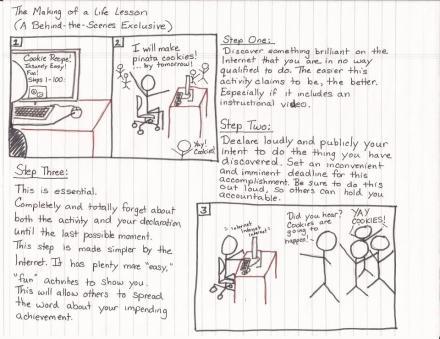 The Making of a Life Lesson
(A Behind-the-Scenes Exclusive)
1
Cookie Recipe!
Insanely Easy!
Fun!
Steps 1-100:
2
I will make
pinata cookies!
... by tomorrow!
Yay!
Cookies!
Step One:
Discover something brilliant on the
Internet that you are in no way
qualified to do. The easier this
activity claims to be, the better.
Especially if it includes an
instructional video.
Step Two:
Declare loudly and publicly your
intent to do the thing you have
discovered. Set an inconvenient
and imminent deadline for this
accomplishment. Be sure to do this
out loud, so others can hold you
accountable.
Step Three:
This is essential.
Completely and totally forget about
both the activity and your declaration
until the last possible moment.
This step is made simpler by the
Internet. It has plenty more "easy,"
"fun" activities to show you.
This will allow others to spread
the word about your impending
achievement.
3
Internet
Internet
Internet
Did you hear?
Cookies are
going to
happen!
YAY
COOKIES!